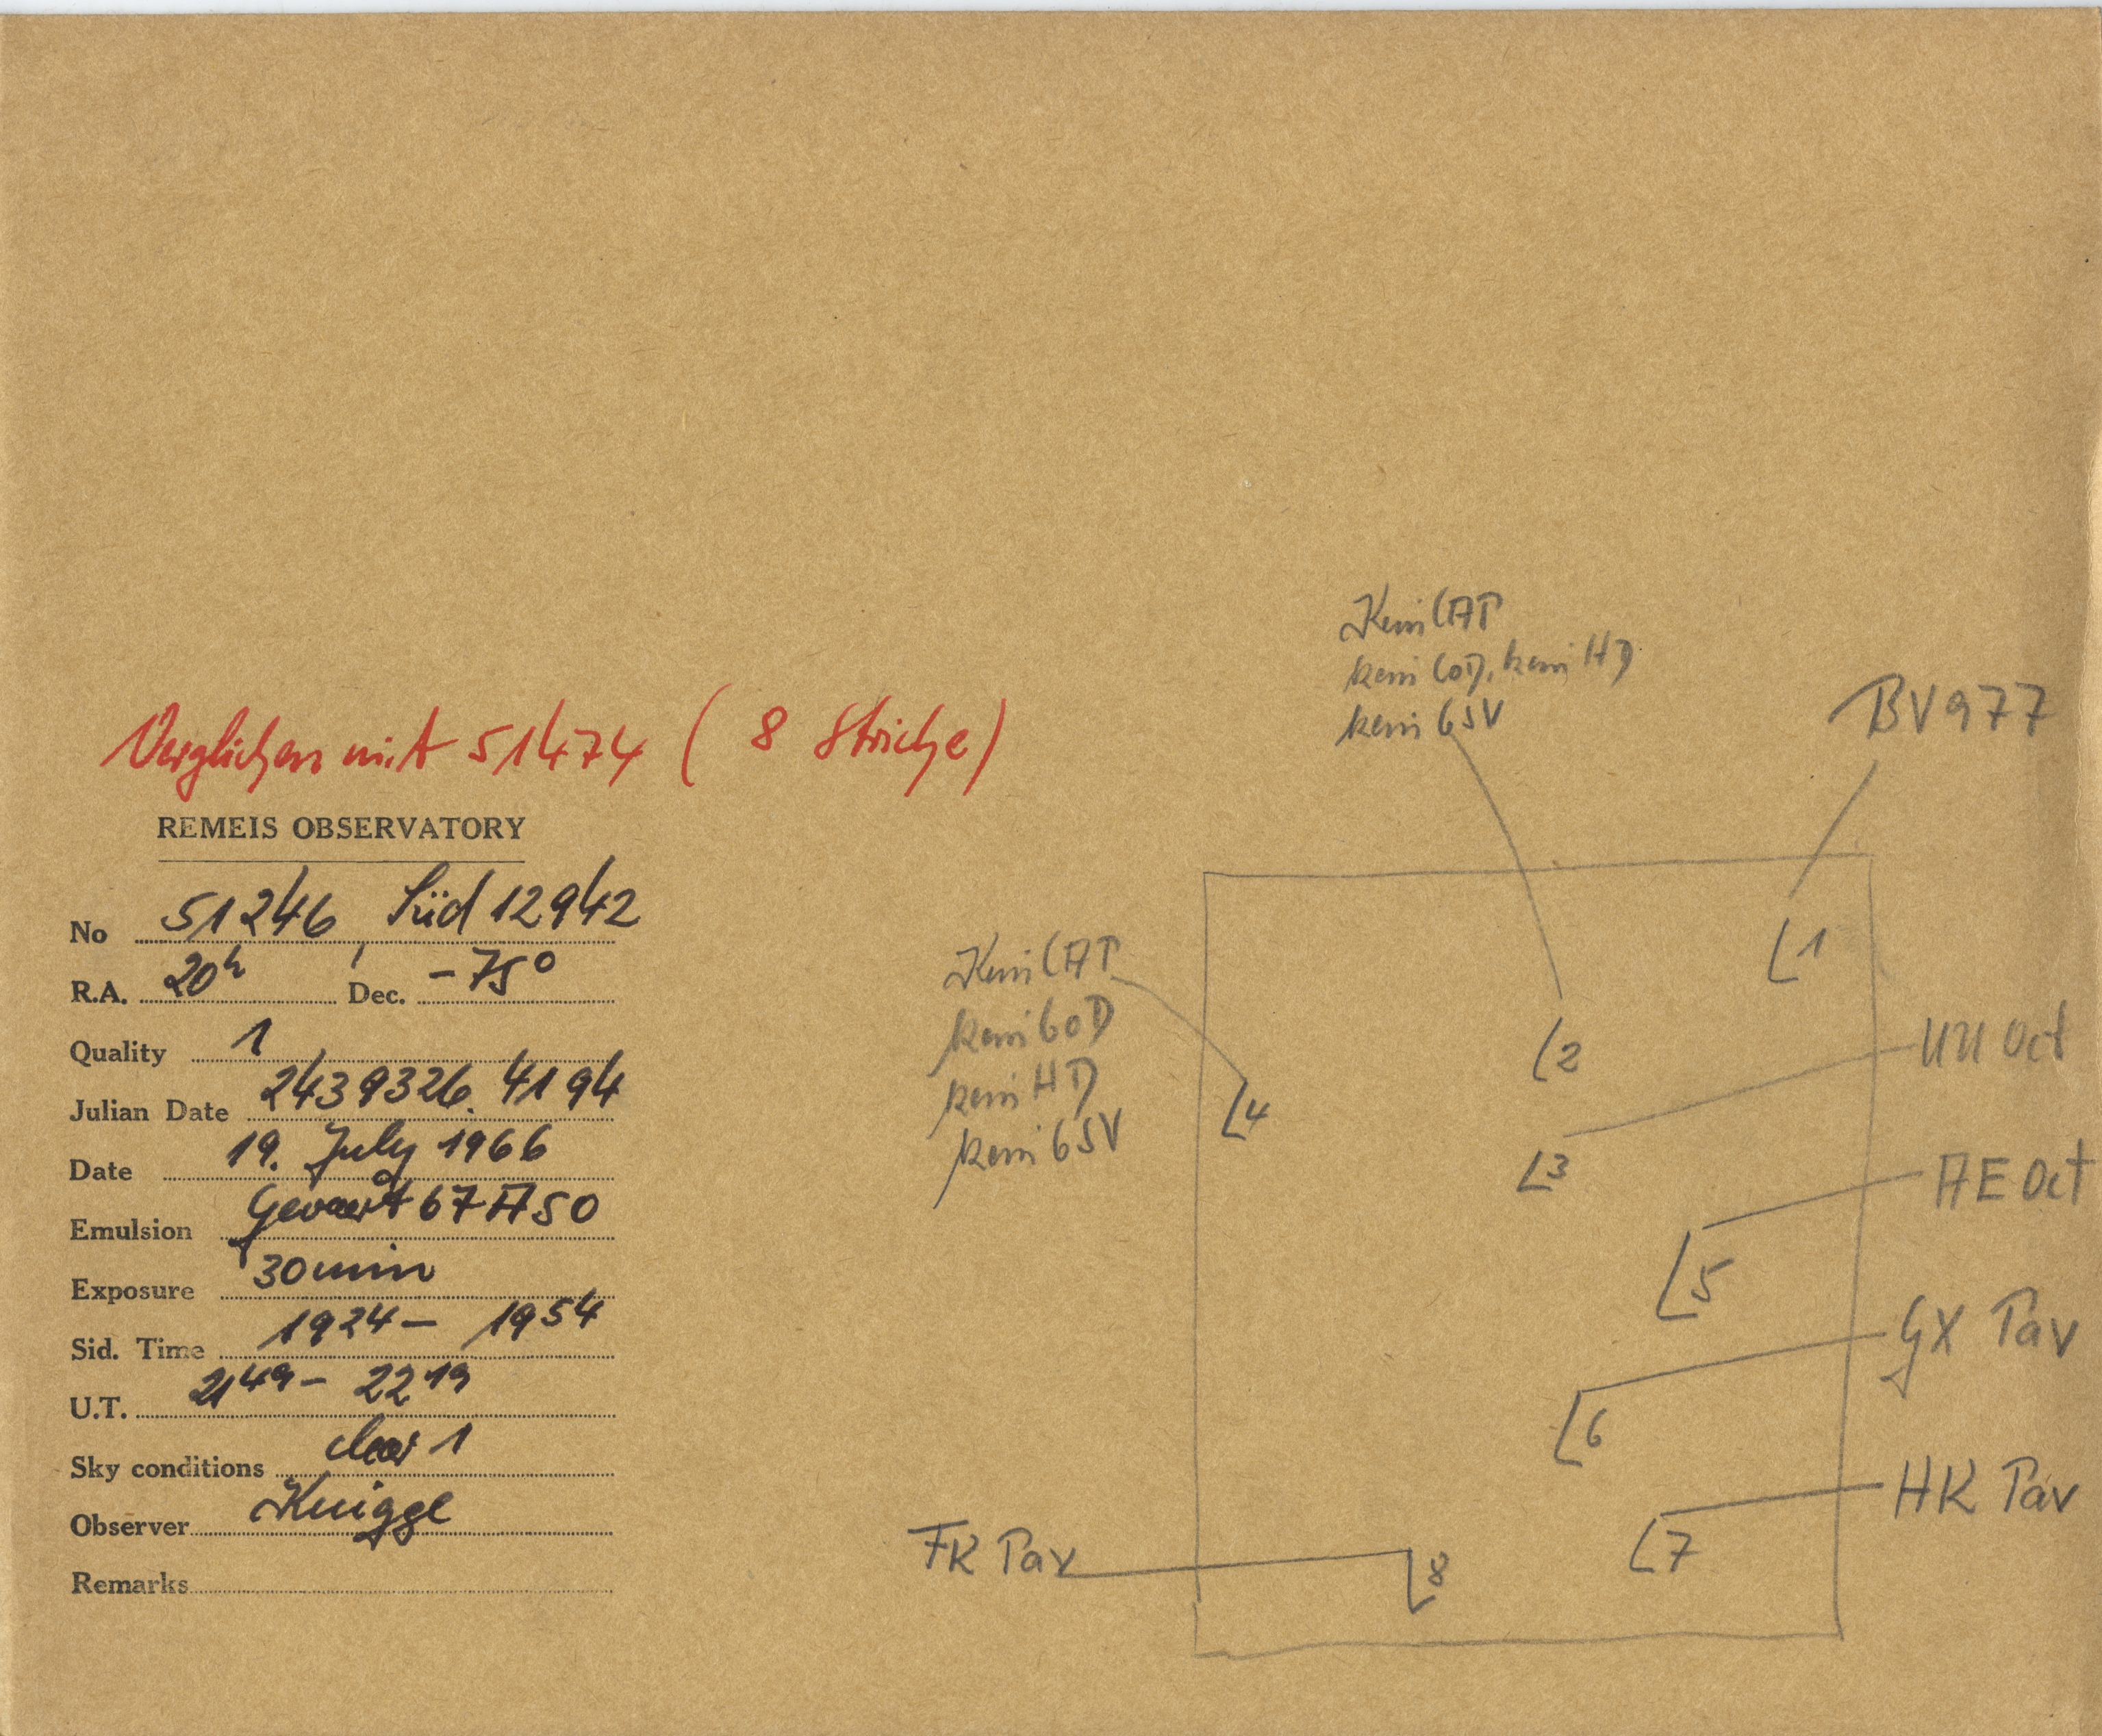 Verglichen mit 51474 ( 8 Striche)
REMEIS OBSERVATORY
No 51246, Süd 12942
R.A. 20h Dec. -75°
Quality 1
Julian Date 2439326.4194
Date 19. July 1966
Emulsion Gevaert 67A50
Exposure 30min
Sid. Time 19 24 - 19 54
U.T. 21 49 - 22 19
Sky conditions clear 1
Observer Knigge
Remarks
Kein CAP
kein CoD, kein HD
kein GSV
BV 977
1
Kein CAP
kein CoD
kein HD
kein GSV
2
UU Oct
4
3
AE Oct
5
GX Pav
6
HK Pav
7
FK Pav
8